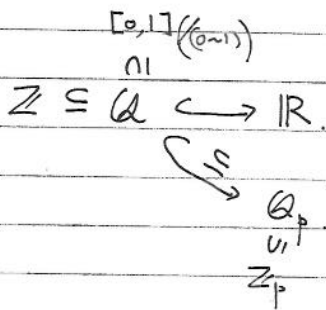 [0,1] ((0~1))
∩|
ℤ ⊆ ℚ ↪ ℝ.
⊆
ℚ_p.
∪|
ℤ_p